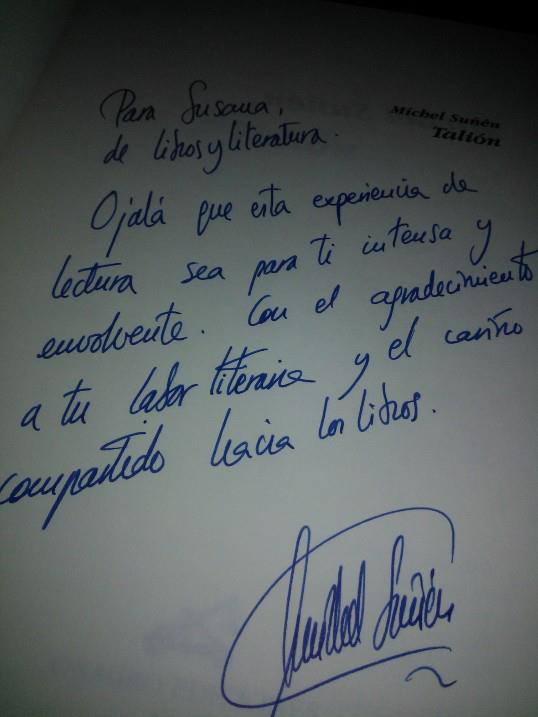 Michel Suñén
Talión
Para Susana,
de libros y literatura.
Ojalá que esta experiencia de
lectura sea para ti intensa y
envolvente. Con el agradecimiento
a tu labor literaria y el cariño
compartido hacia los libros.
Michel Suñén